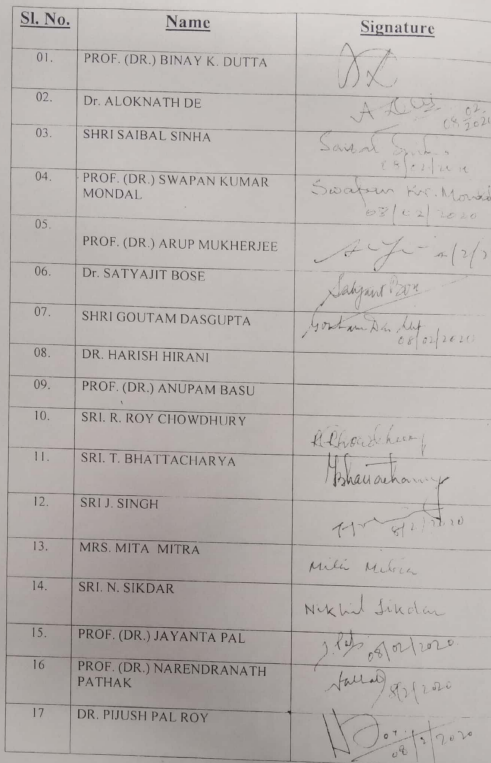 Sl. No. Name Signature
01. PROF. (DR.) BINAY K. DUTTA
02. Dr. ALOKNATH DE
03. SHRI SAIBAL SINHA
04. PROF. (DR.) SWAPAN KUMAR
MONDAL
Swapan Kr. Mondal
08/02/2020
05.
PROF. (DR.) ARUP MUKHERJEE
06. Dr. SATYAJIT BOSE
Satyajit Bose
07. SHRI GOUTAM DASGUPTA
08/02/2020
08. DR. HARISH HIRANI
09. PROF. (DR.) ANUPAM BASU
10. SRI. R. ROY CHOWDHURY
11. SRI. T. BHATTACHARYA
12. SRI J. SINGH
8/2/2020
13. MRS. MITA MITRA
Mita Mitra
14. SRI. N. SIKDAR
Nikhil Sikdar
15. PROF. (DR.) JAYANTA PAL
J. Pal 08/02/2020
16 PROF. (DR.) NARENDRANATH
PATHAK
8/2/2020
17 DR. PIJUSH PAL ROY
08/2/2020